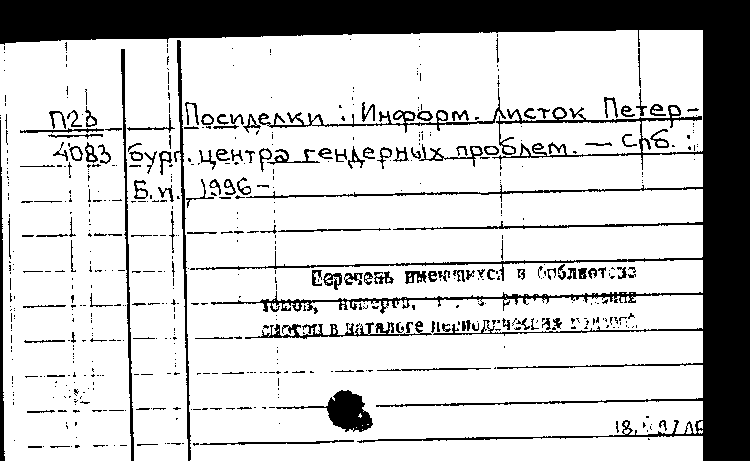 П23 Посиделки : Информ. листок Петер-
4083 бург. центра гендерных проблем. — Спб. :
Б.и., 1996-
Перечень имеющихся в библиотеке
томов, номеров, этого издания
смотри в каталоге периодических изданий.